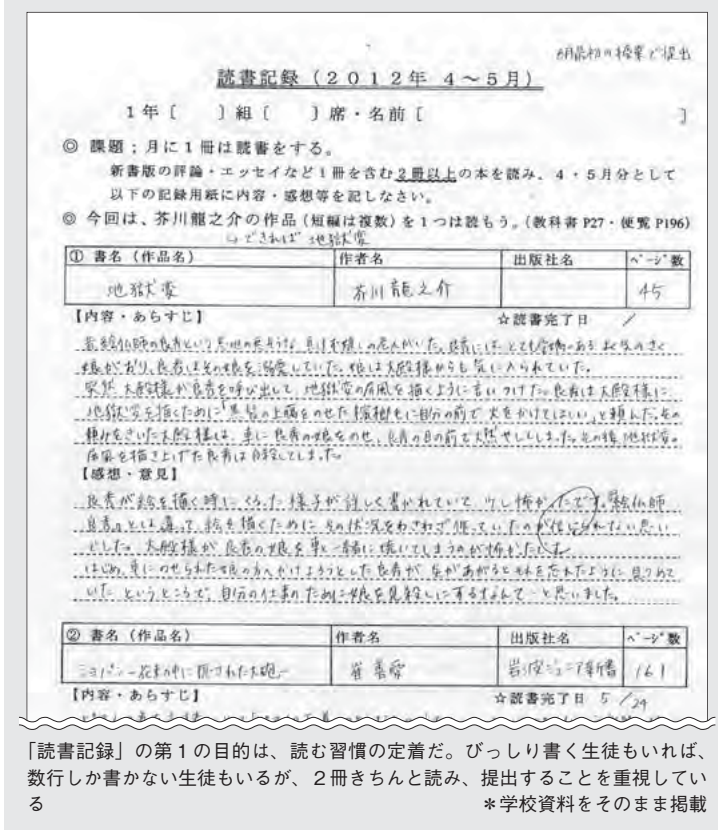 6月最初の授業で提出
読書記録（2012年 4～5月）
1年［ ］組［ ］席・名前［ ］
◎ 課題；月に1冊は読書をする。
新書版の評論・エッセイなど1冊を含む2冊以上の本を読み、4・5月分として
以下の記録用紙に内容・感想等を記しなさい。
◎ 今回は、芥川龍之介の作品（短編は複数）を1つは読もう。（教科書 P27・便覧 P196）
↳できれば 地獄変
① 書名（作品名） 作者名 出版社名 ページ数
地獄変 芥川龍之介 45
【内容・あらすじ】 ☆読書完了日 ／
娘がおり、良秀はその娘を溺愛していた。娘は大殿様からも気に入られていた。
突然、大殿様が良秀を呼び出して、地獄変の屏風を描くように言いつけた。良秀は大殿様に
地獄変を描くために「 上臈をのせた檳榔毛に自分の前で火をかけてほしい」と頼んだ。その
頼みをきいた大殿様は、車に良秀の娘をのせ、良秀の目の前で燃やしてしまった。その後、地獄変の
屏風を描き上げた良秀は自殺してしまった。
【感想・意見】
良秀が絵を描く時に くるった様子が詳しく書かれていて 少し怖かったです。
絵を描くために その状況をわざわざ作っていたのが信じられない思い
でした。大殿様が 良秀の娘を車と一緒に焼いてしまうのが怖かったです。
はじめ、車にのせられた娘の方へかけようとした良秀が 火があがるとそれを忘れたように見つめて
いた というところで、自分の仕事のために娘を見殺しにするなんて…と思いました。
② 書名（作品名） 作者名 出版社名 ページ数
ショパン ー花束の中に隠された大砲ー 崔善愛 岩波ジュニア新書 161
【内容・あらすじ】 ☆読書完了日 5／29
「読書記録」の第1の目的は、読む習慣の定着だ。びっしり書く生徒もいれば、
数行しか書かない生徒もいるが、2冊きちんと読み、提出することを重視してい
る ＊学校資料をそのまま掲載